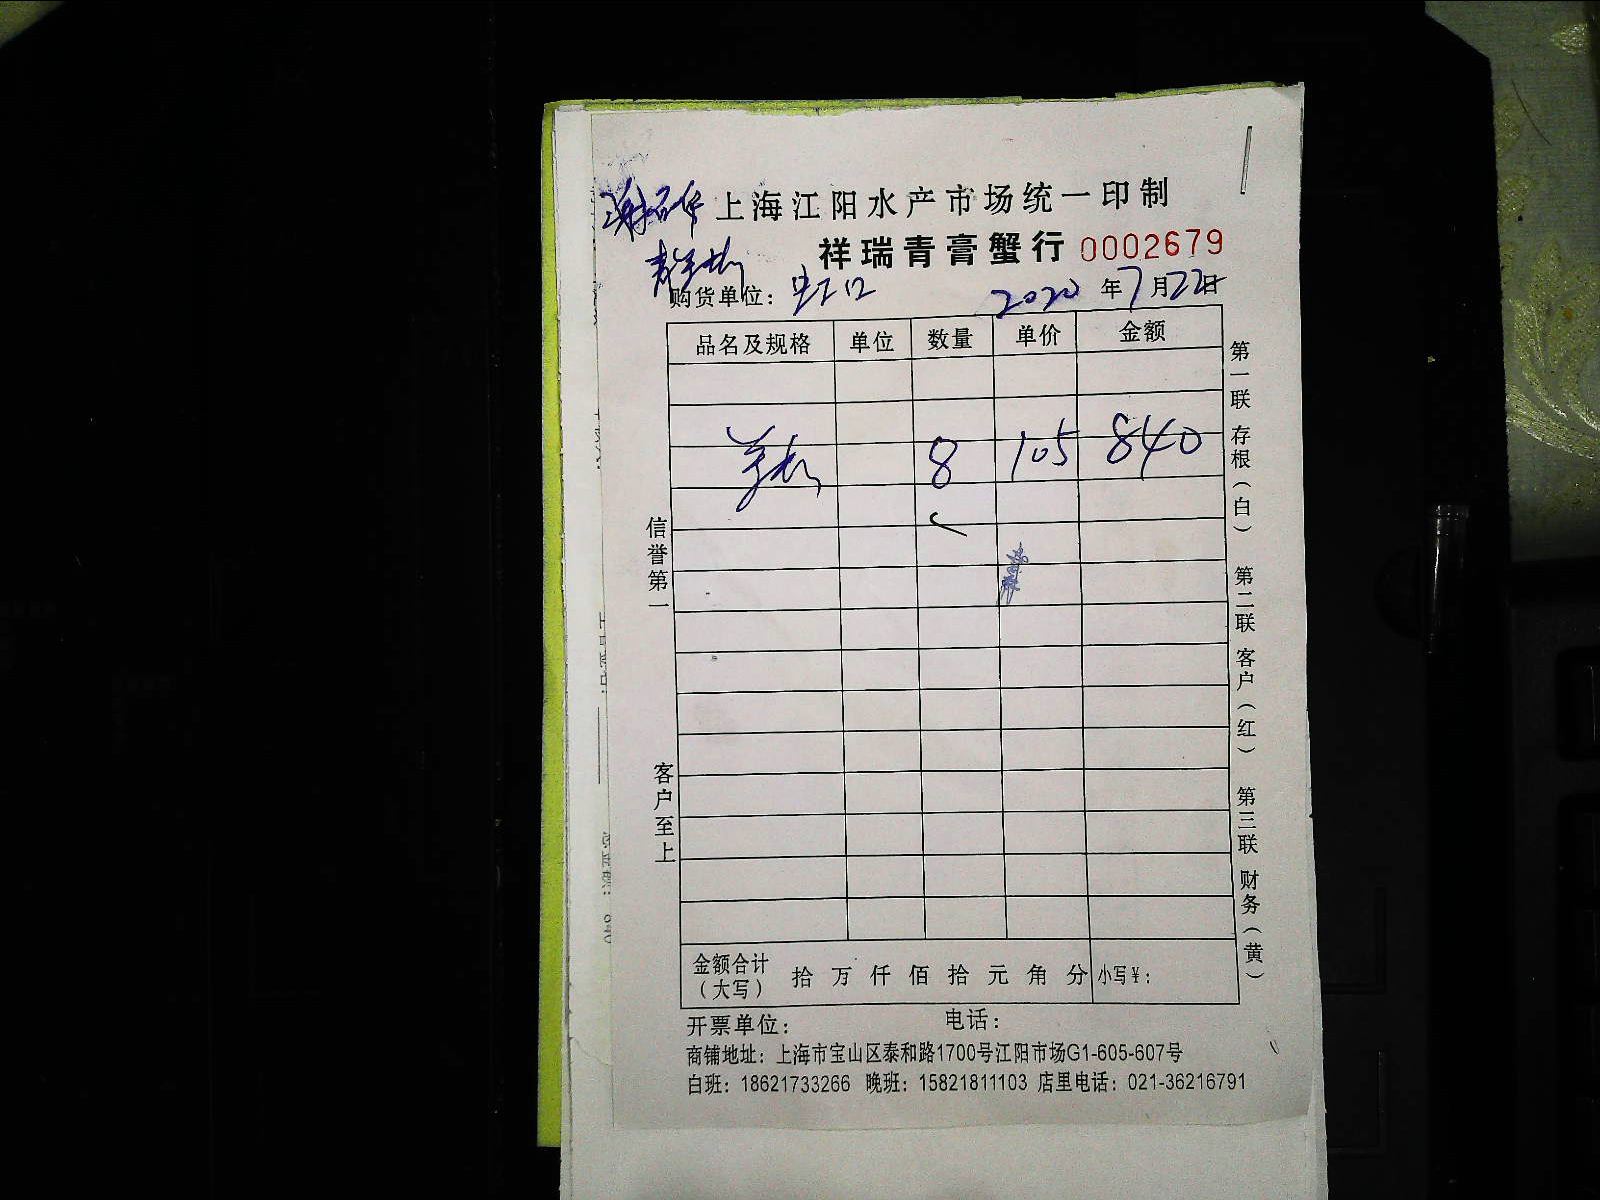 上海江阳水产市场统一印制
祥瑞青膏蟹行 0002679
购货单位：虹口 2020年7月22日
品名及规格 单位 数量 单价 金额
8 105 840
信誉第一
客户至上
第一联 存根（白） 第二联 客户（红） 第三联 财务（黄）
金额合计（大写） 拾 万 仟 佰 拾 元 角 分 小写￥：
开票单位： 电话：
商铺地址：上海市宝山区泰和路1700号江阳市场G1-605-607号
白班：18621733266 晚班：15821811103 店里电话：021-36216791